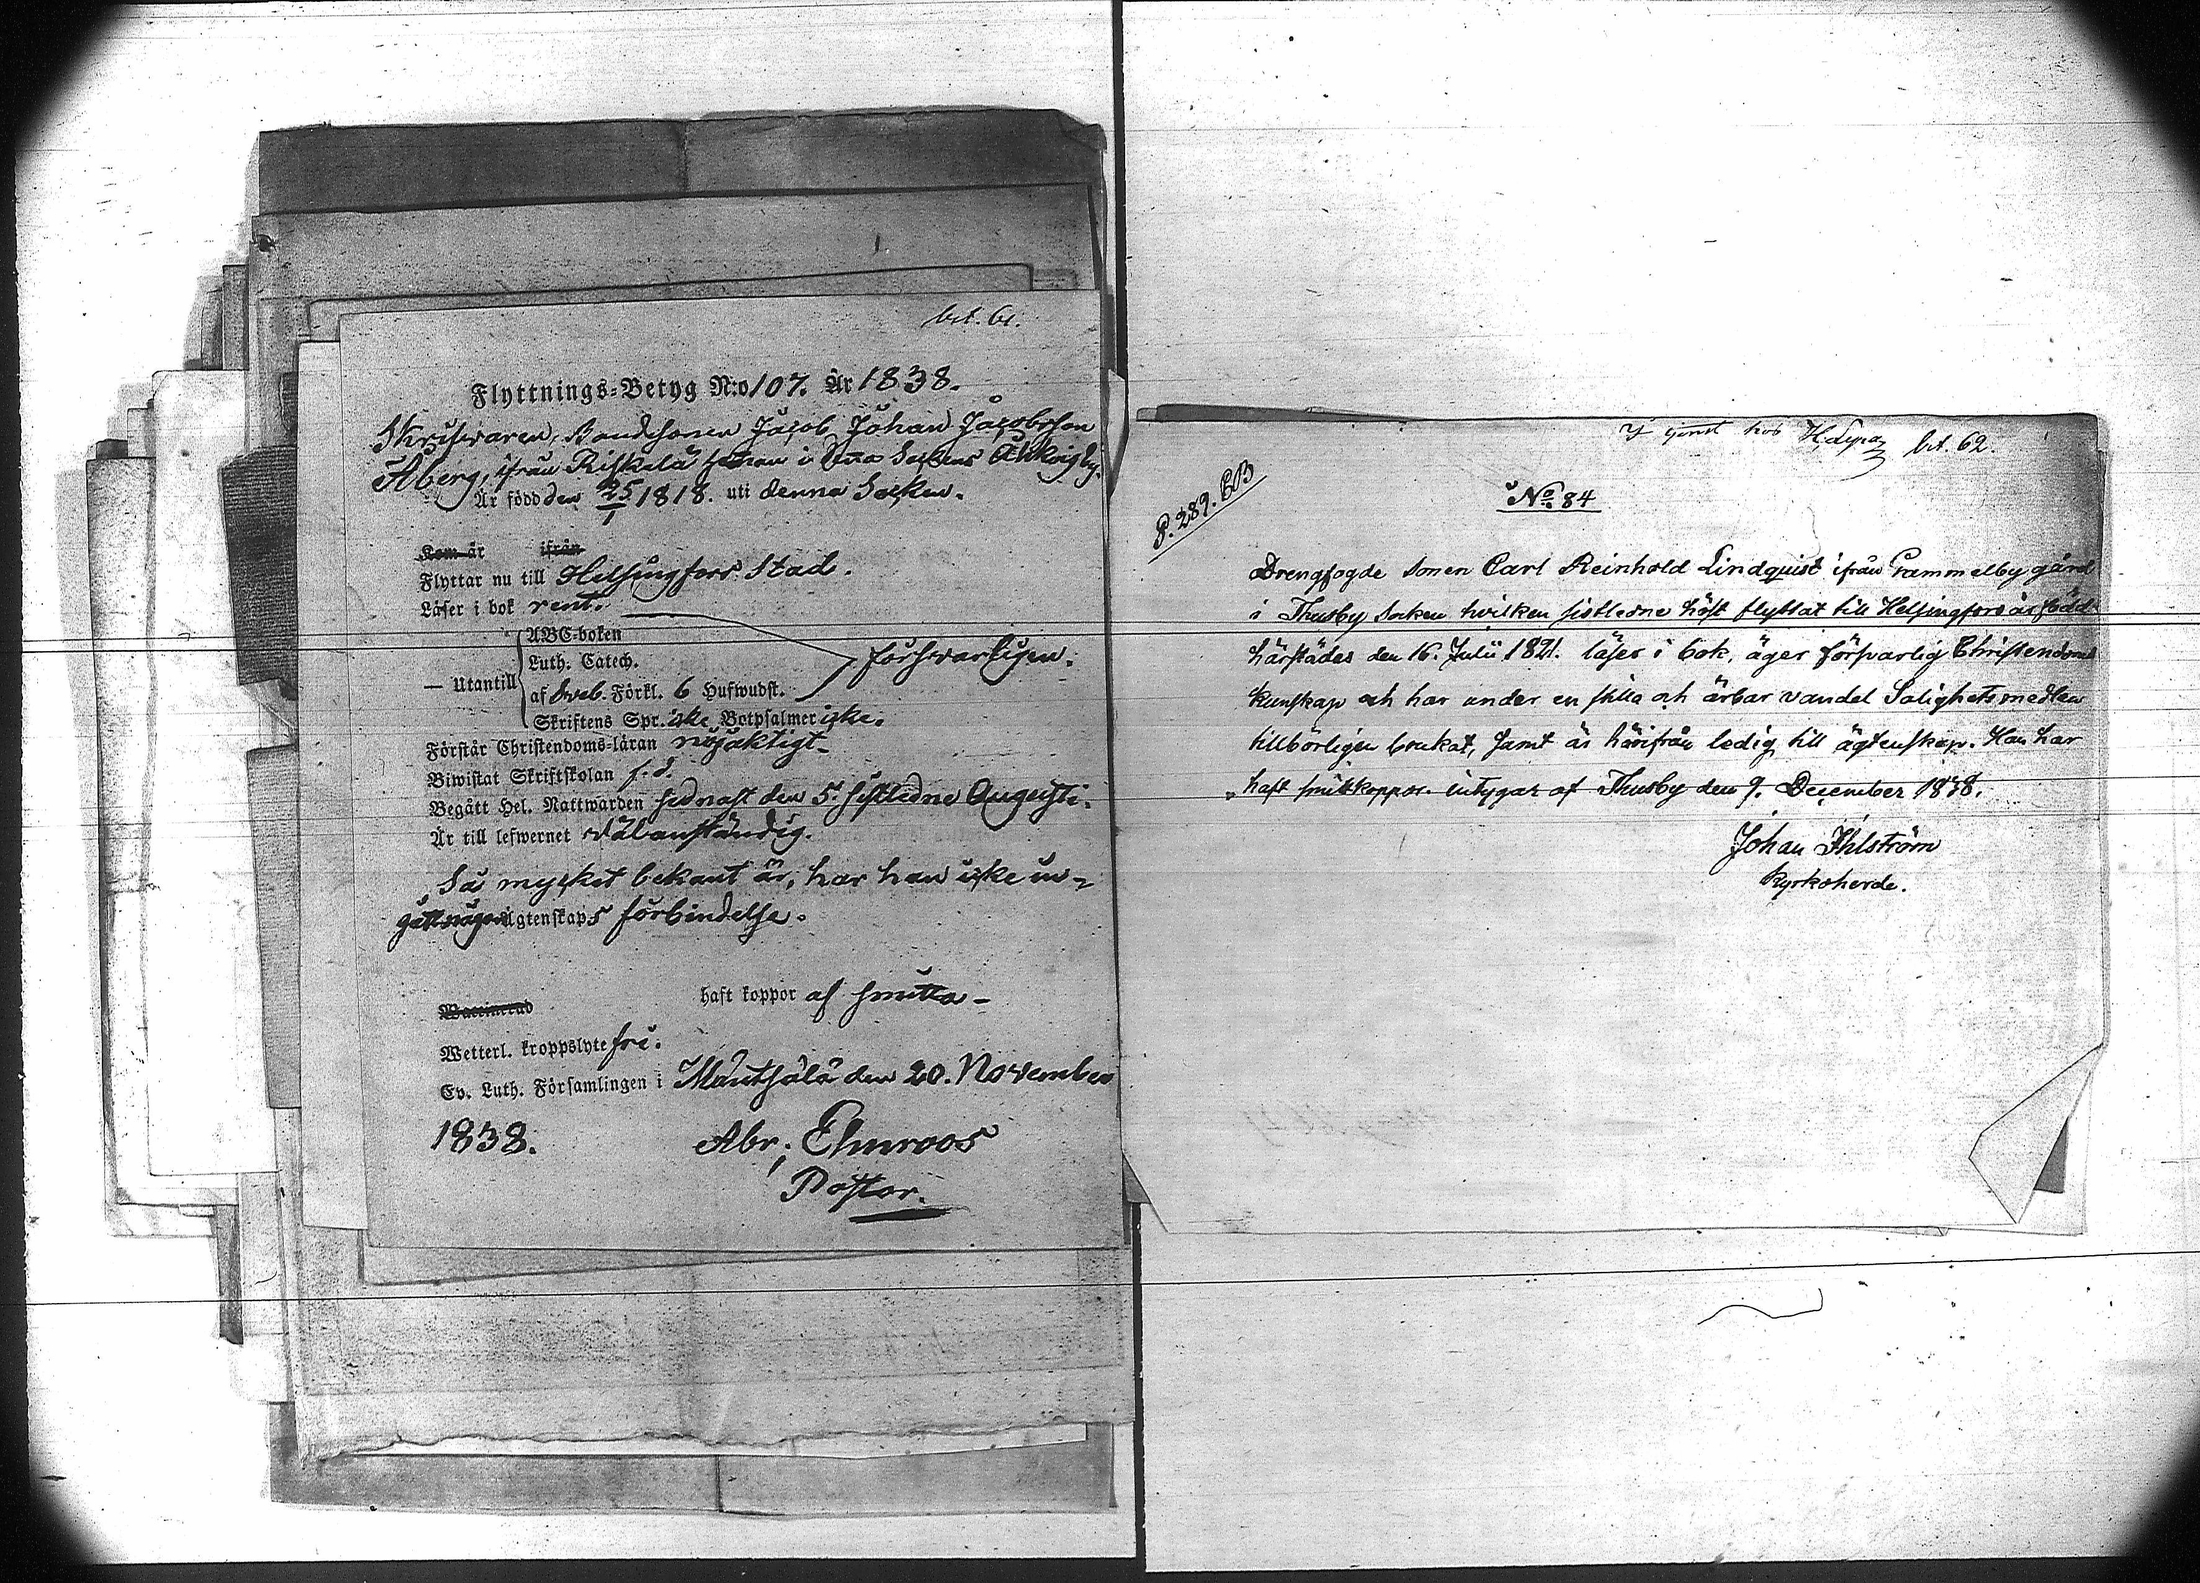 bet. 61.
Flyttnings-Betyg N:o 107. År 1838.
Skrifvaren, Bondesonen Jacob Johan Jacobsson
Åberg, ifrån Riskelä hemman i Denna Sockens
Är född den 25/1 1818. uti denna Socken.
Kom år ifrån
Flyttar nu till Helsingfors Stad.
Läser i bok rent.
— Utantill
ABC-boken
Luth. Catech.
försvarligen.
af Sveb. Förkl. 6 Hufwudst.
Skriftens Spr. icke Botpsalmer icke.
Förstår Christendoms-läran nöjaktigt.
Biwistat Skriftskolan f. d.
Begått Hel. Nattwarden sednast den 5. sistledne Augusti.
Är till lefwernet välanständig.
Så mycket bekant är, har han icke in-
gått någon Ägtenskaps förbindelse.
Waccinerad haft koppor af smitta -
Wetterl. kroppslyte fri.
Ev. Luth. Församlingen i Mäntsälä den 20. November
1838. Abr. Elmroos
Pastor.
I tjenst hos bet. 62.
P. 289. CB
No 84
Drengfogde sonen Carl Reinhold Lindquist ifrån Gammelby gård
i Thusby Socken hvilken sistledne höst flyttat till Helsingfors är född
härstädes den 16. Julii 1821. läser i bok, äger försvarlig Christendoms
kunskap och har under en stilla och ärbar vandel Salighetsmedlen
tillbörligen brukat, samt är härifrån ledig till ägtenskap. Han har
haft smittkoppor. intygar af Thusby den 9. December 1838.
Johan Ihlström
Kyrkoherde.